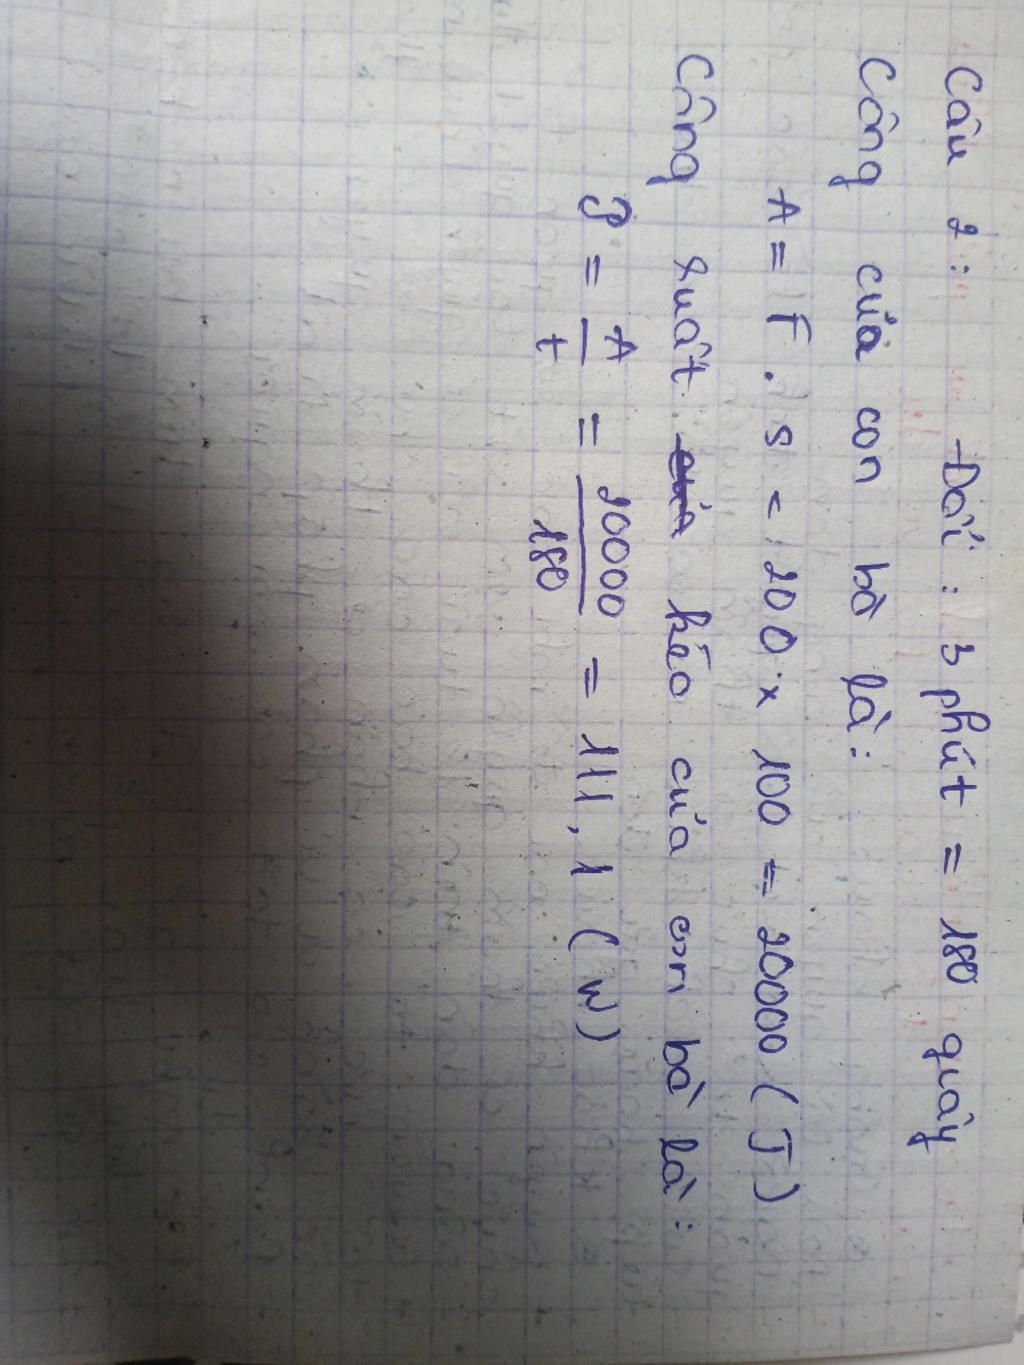 Câu 2: Đổi: 3 phút = 180 giây
Công của con bò là:
A = F . s = 200 x 100 = 20000 (J)
Công xuất kéo của con bò là:
P = A/t = 20000/180 = 111,1 (W)